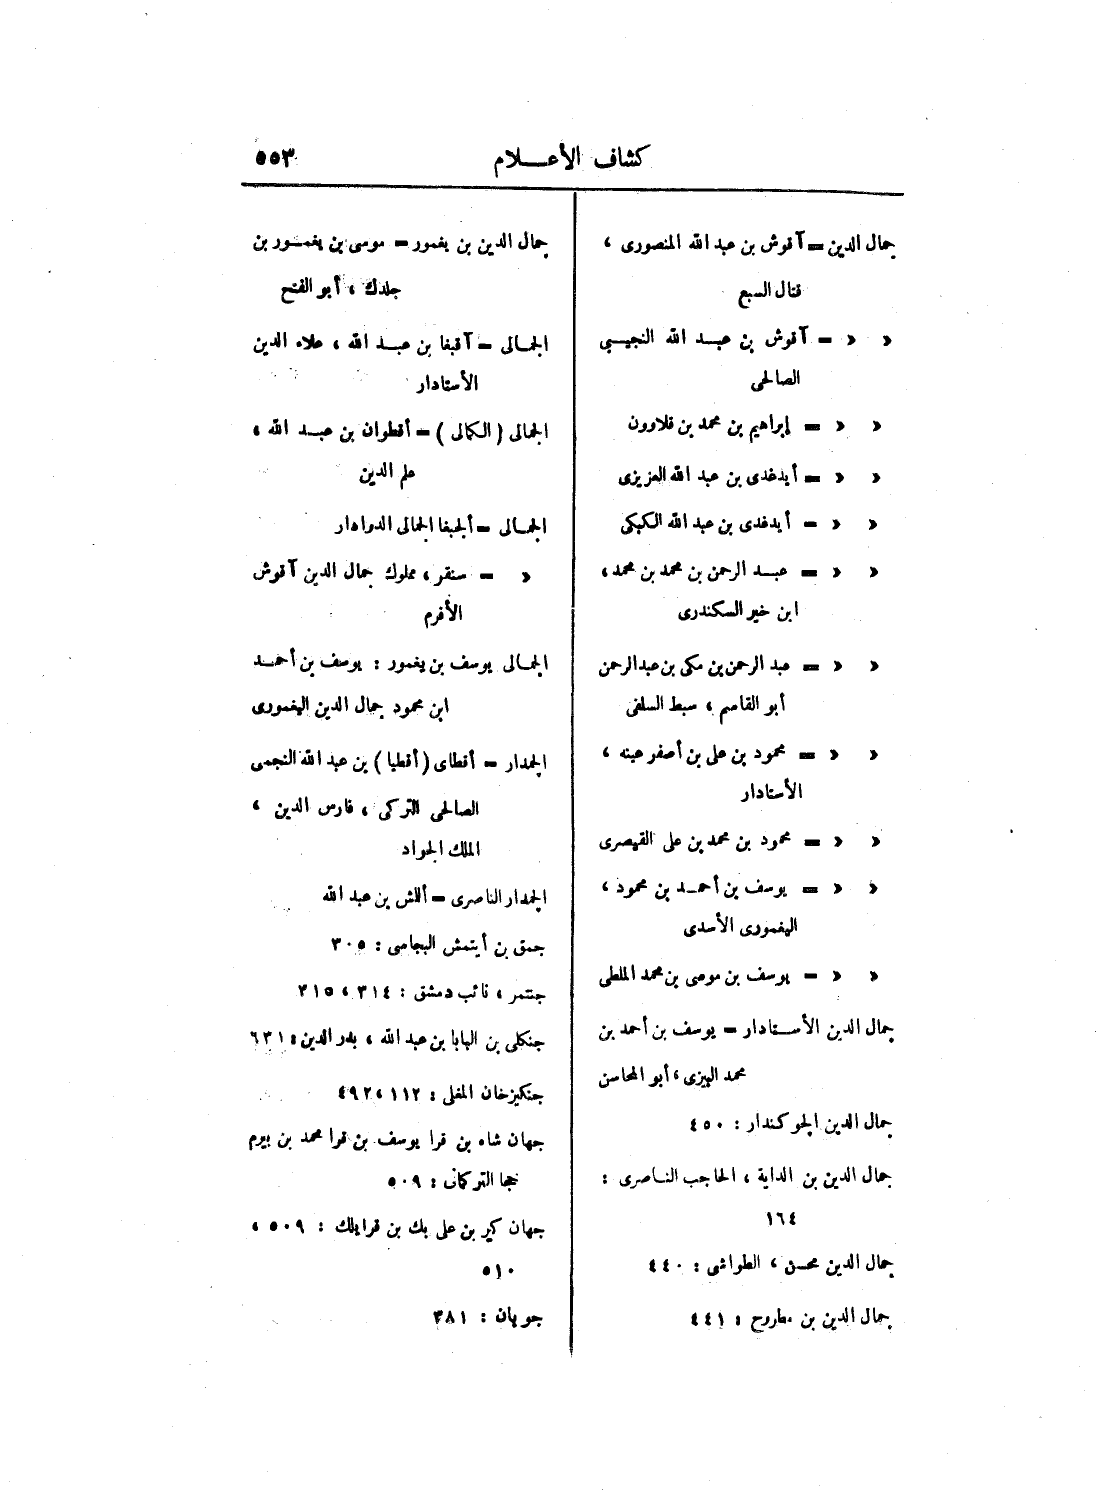 كشاف الأعلام
٥٥٣
جمال الدين = آقوش بن عبد الله المنصورى ،
قتال السبع
« « = آقوش بن عبد الله النجيبي
الصالحى
« « = إبراهيم بن محمد بن قلاوون
« « = أيدغدى بن عبد الله العزيزى
« « = أيدغدى بن عبد الله الكبكى
« « = عبد الرحمن بن محمد بن محمد ،
ابن خير السكندرى
« « = عبد الرحمن بن مكى بن عبد الرحمن
أبو القاسم ، سبط السلفى
« « = محمود بن على بن أصفر عينه ،
الأستادار
« « = محمود بن محمد بن على القيصرى
« « = يوسف بن أحمد بن محمود ،
اليغمورى الأسدى
« « = يوسف بن موسى بن محمد الملطى
جمال الدين الأستادار = يوسف بن أحمد بن
محمد البيزى ، أبو المحاسن
جمال الدين الجوكندار : ٤٥٠
جمال الدين بن الداية ، الحاجب الناصرى :
١٦٤
جمال الدين محسن ، الطواشى : ٤٤٠
جمال الدين بن مطروح : ٤٤١
جمال الدين بن يغمور = موسى بن يغمور بن
جلدك ، أبو الفتح
الجمالى = آقبغا بن عبد الله ، علاء الدين
الأستادار
الجمالى ( الكمالى ) = أقطوان بن عبد الله ،
علم الدين
الجمالى = ألجبغا الجمالى الدوادار
« = سنقر ، مملوك جمال الدين آقوش
الأفرم
الجمالى يوسف بن يغمور : يوسف بن أحمد
ابن محمود جمال الدين اليغمورى
الجمدار = أقطاى ( أقطيا ) بن عبد الله النجمى
الصالحى التركى ، فارس الدين ،
الملك الجواد
الجمدار الناصرى = أللش بن عبد الله
جمق بن أيتمش البجامى : ٣٠٥
جنتمر ، نائب دمشق : ٣١٤ ، ٣١٥
جنكلى بن البابا بن عبد الله ، بدر الدين : ٦٣١
جنكيزخان المغلى : ١١٢ ، ٤٩٢
جهان شاه بن قرا يوسف بن قرا محمد بن بيرم
خجا التركمانى : ٥٠٩
جهان كير بن على بك بن قرايلك : ٥٠٩ ،
٥١٠
جوبان : ٣٨١